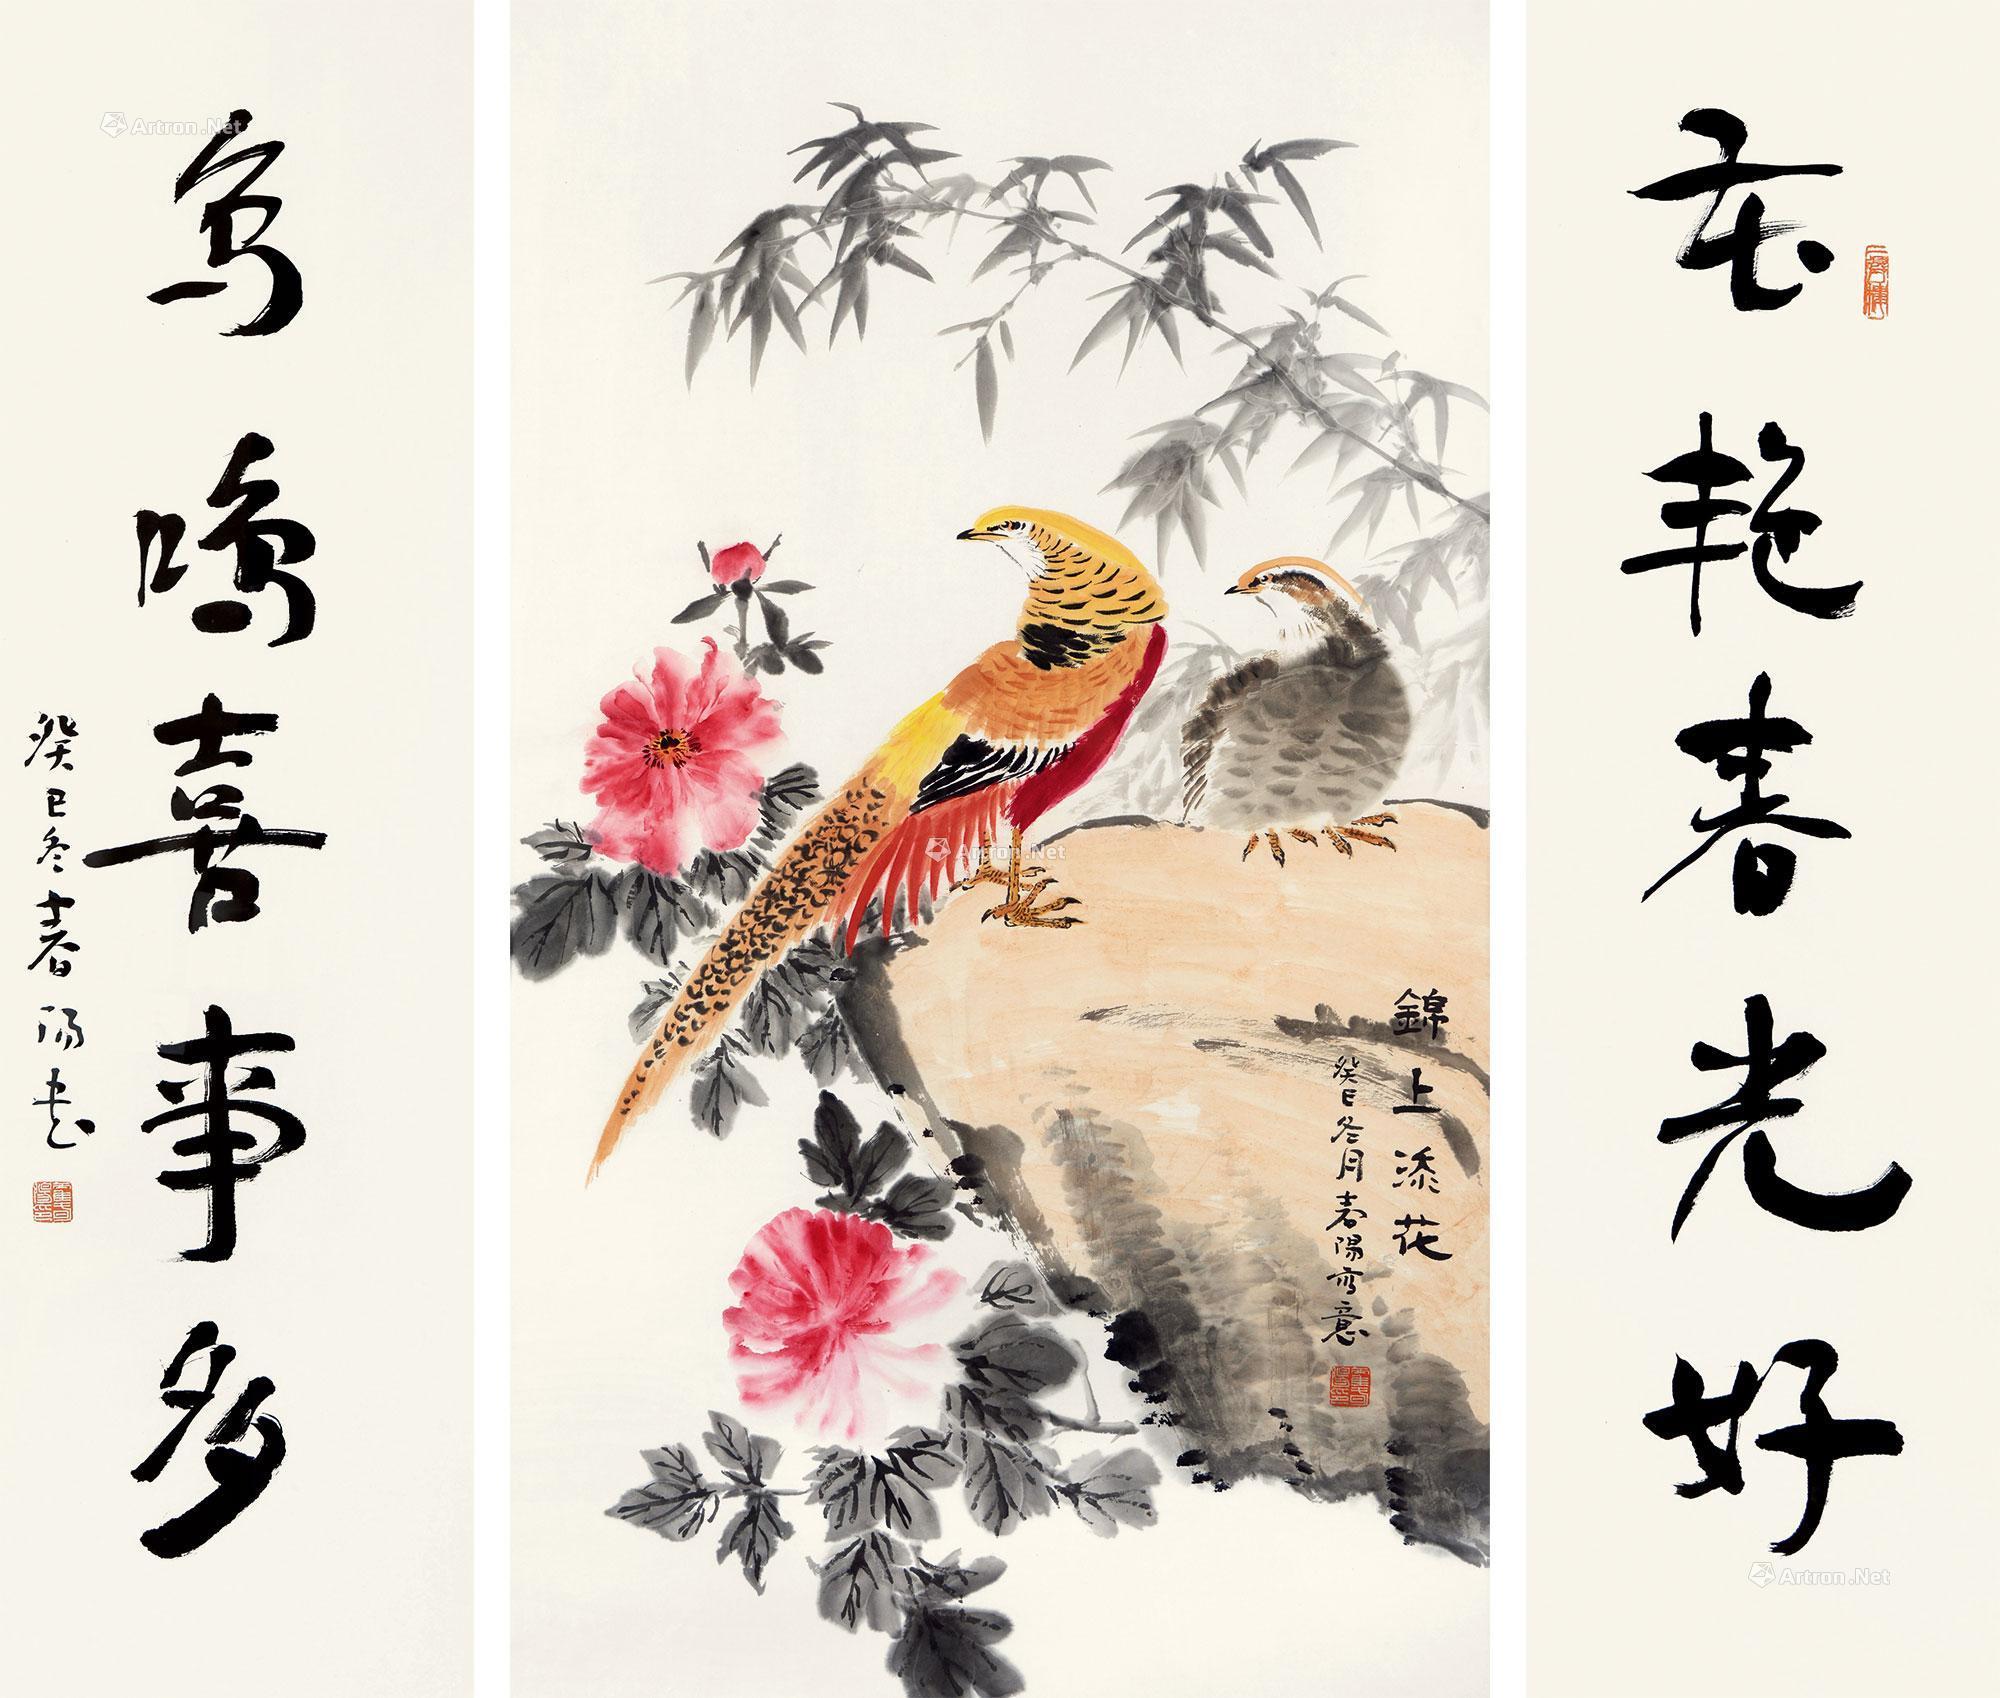 花艳春光好
鸟鸣喜事多
癸巳冬春阳书
錦上添花
癸巳冬月春陽写意
Artron.Net
Artron.Net
Artron.Net